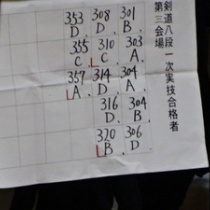 剣道八段一次実技合格者
第三会場
353 308 301
D. D. B.
355 310 303
C. C. A.
357 314 304
A. D. A.
316 304
D. B.
320 306
B. D